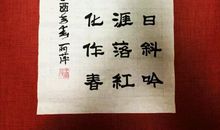 日斜吟
涯落紅
化作春